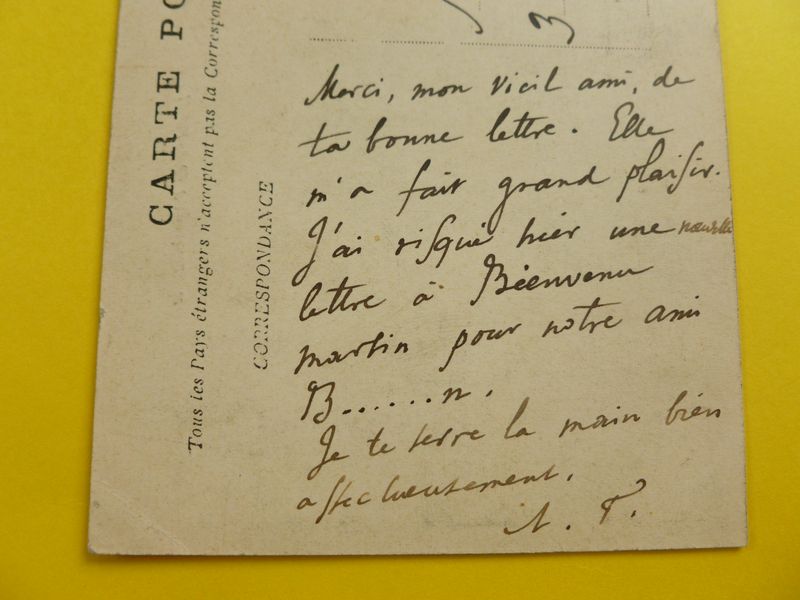 CARTE PO
Tous les Pays étrangers n'acceptent pas la Correspon
CORRESPONDANCE
3
Merci, mon vieil ami, de
ta bonne lettre. Elle
m'a fait grand plaisir.
J'ai risqué hier une nouvelle
lettre à Bienvenu
martin pour notre ami
B......n.
Je te serre la main bien
affectueusement.
A. F.